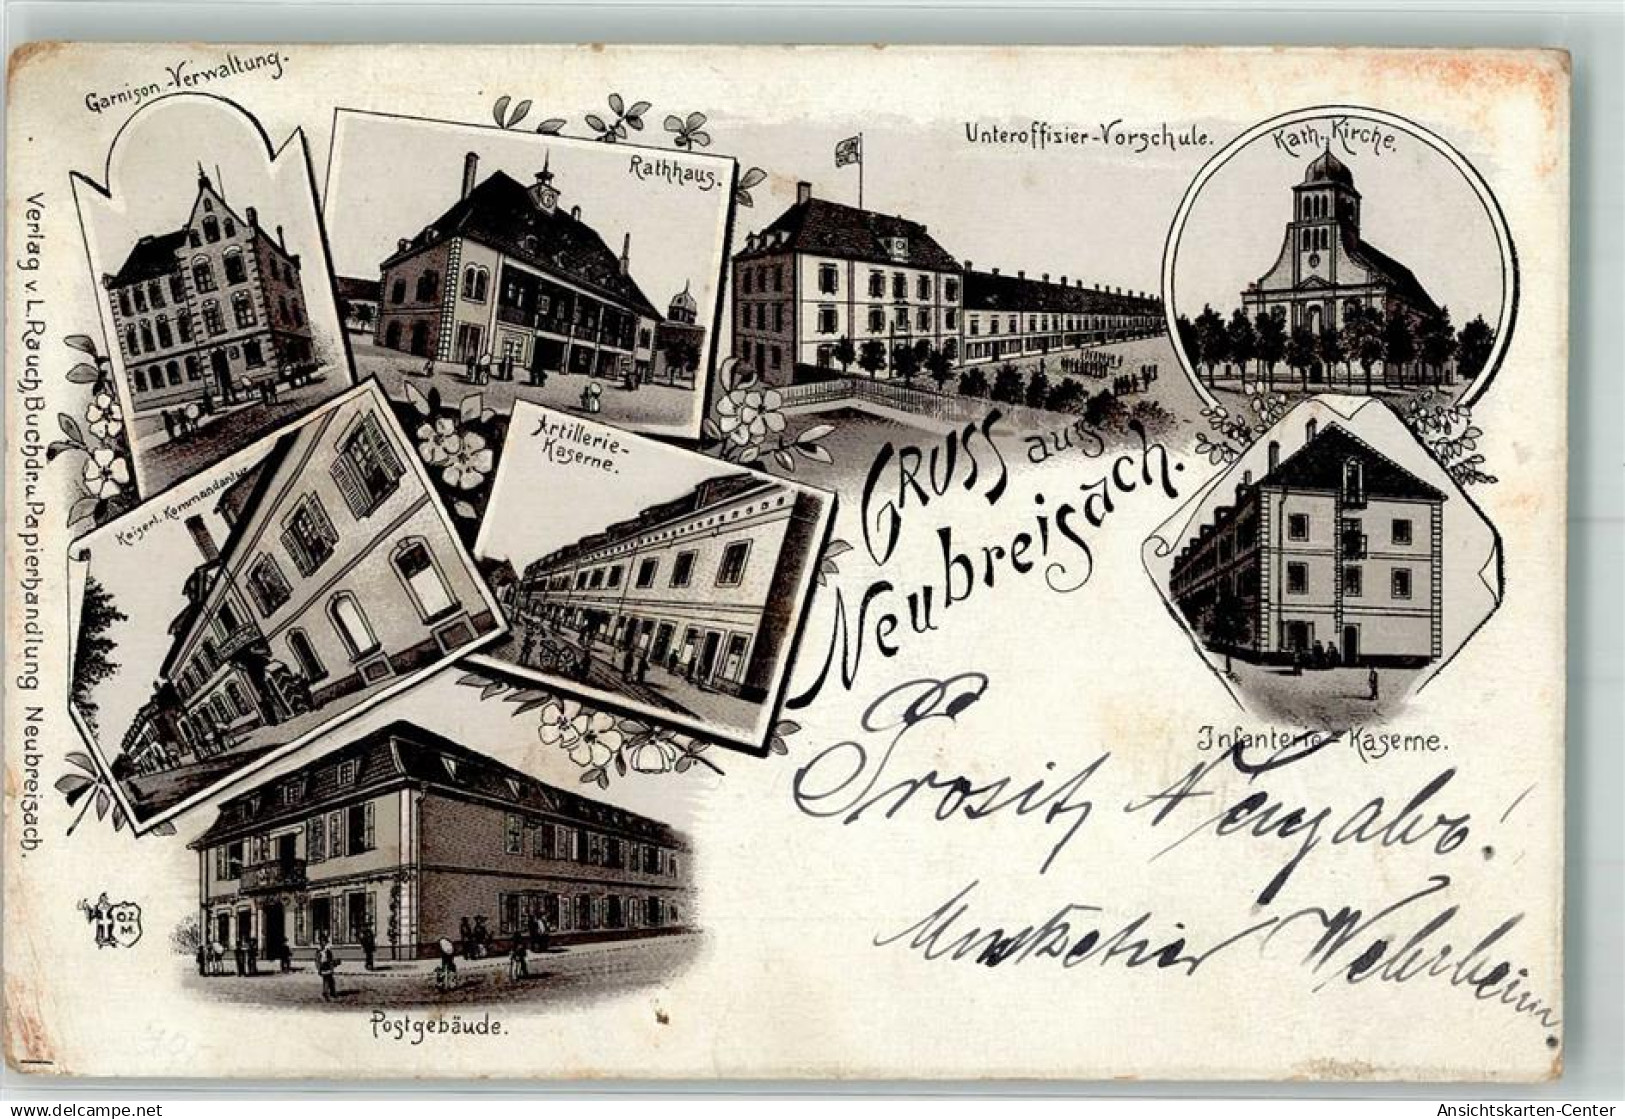 Garnison-Verwaltung.
Rathhaus.
Unteroffizier-Vorschule.
Kath. Kirche.
Kaiserl. Kommandantur
Artillerie-
Kaserne.
GRUSS aus
Neubreisach.
Infanterie-Kaserne.
Postgebäude.
Verlag v. L. Rauch, Buchdr. u. Papierhandlung Neubreisach.
O.Z.
M.
Prosit Neujahr!
Musketier Wehrheim
delcampe.net
Ansichtskarten-Center